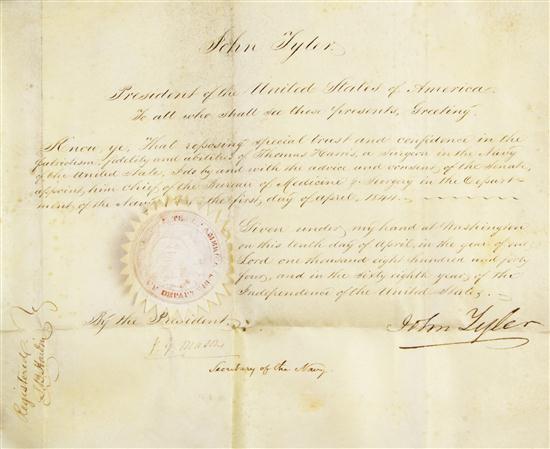 John Tyler
President of the United States of America
To all who shall see these presents, Greeting
Know ye, That reposing special trust and confidence in the
patriotism, fidelity and abilities of Thomas Harris, a Surgeon in the Navy
of the United States, I do by and with the advice and consent of the Senate,
appoint him Chief of the Bureau of Medicine & Surgery in the Depart-
ment of the Navy the first day of April 1844.
Given under my hand at Washington
on this tenth day of April, in the year of our
Lord one thousand eight hundred and forty
four, and in the Sixty eighth year of the
Independence of the United States.
AMERICA
By the President
John Tyler
J. Y. Mason
Secretary of the Navy
Registered